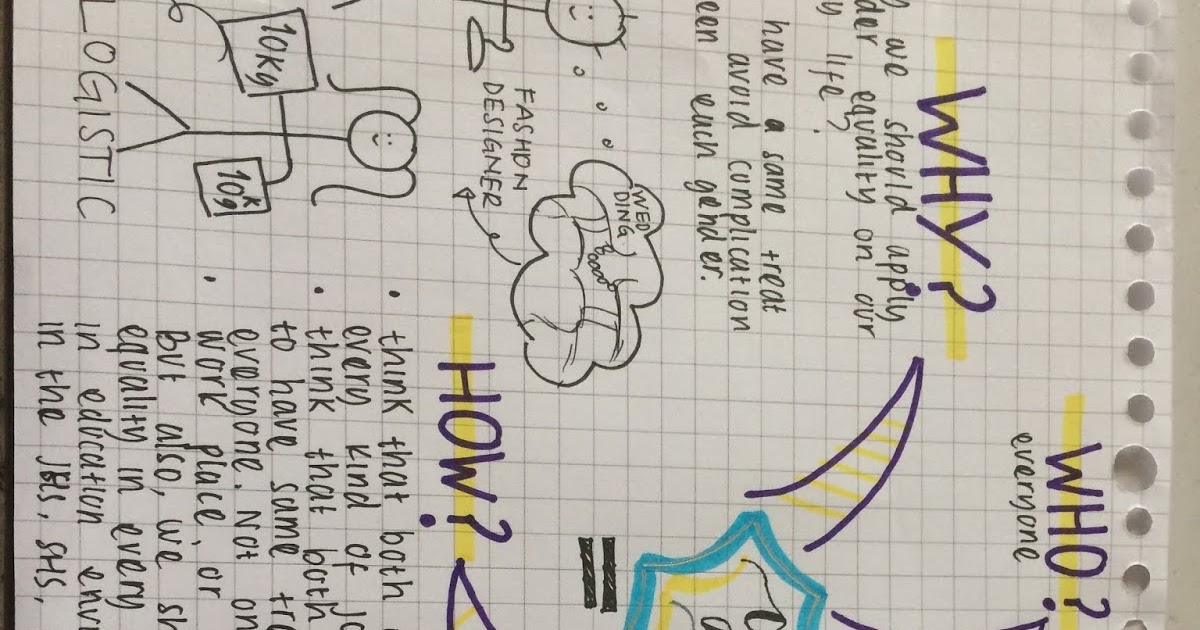 WHO?
everyone
WHY?
we should apply
der equality on our
y life?
have a same treat
avoid complication
een each gender.
WED
DING
FASHION
DESIGNER
HOW?
• think that both
every kind of jo
• think that both
to have same tre
everyone. Not on
work place, or
• But also, we sh
equality in every
in education envi
in the JHS, SHS,
10Kg
10kg
LOGISTIC